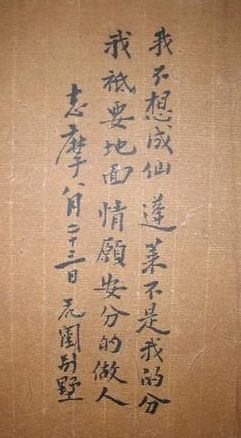 我不想成仙 蓬莱不是我的分
我祗要地面情願安分的做人
志摩八月二十三日 花園别墅